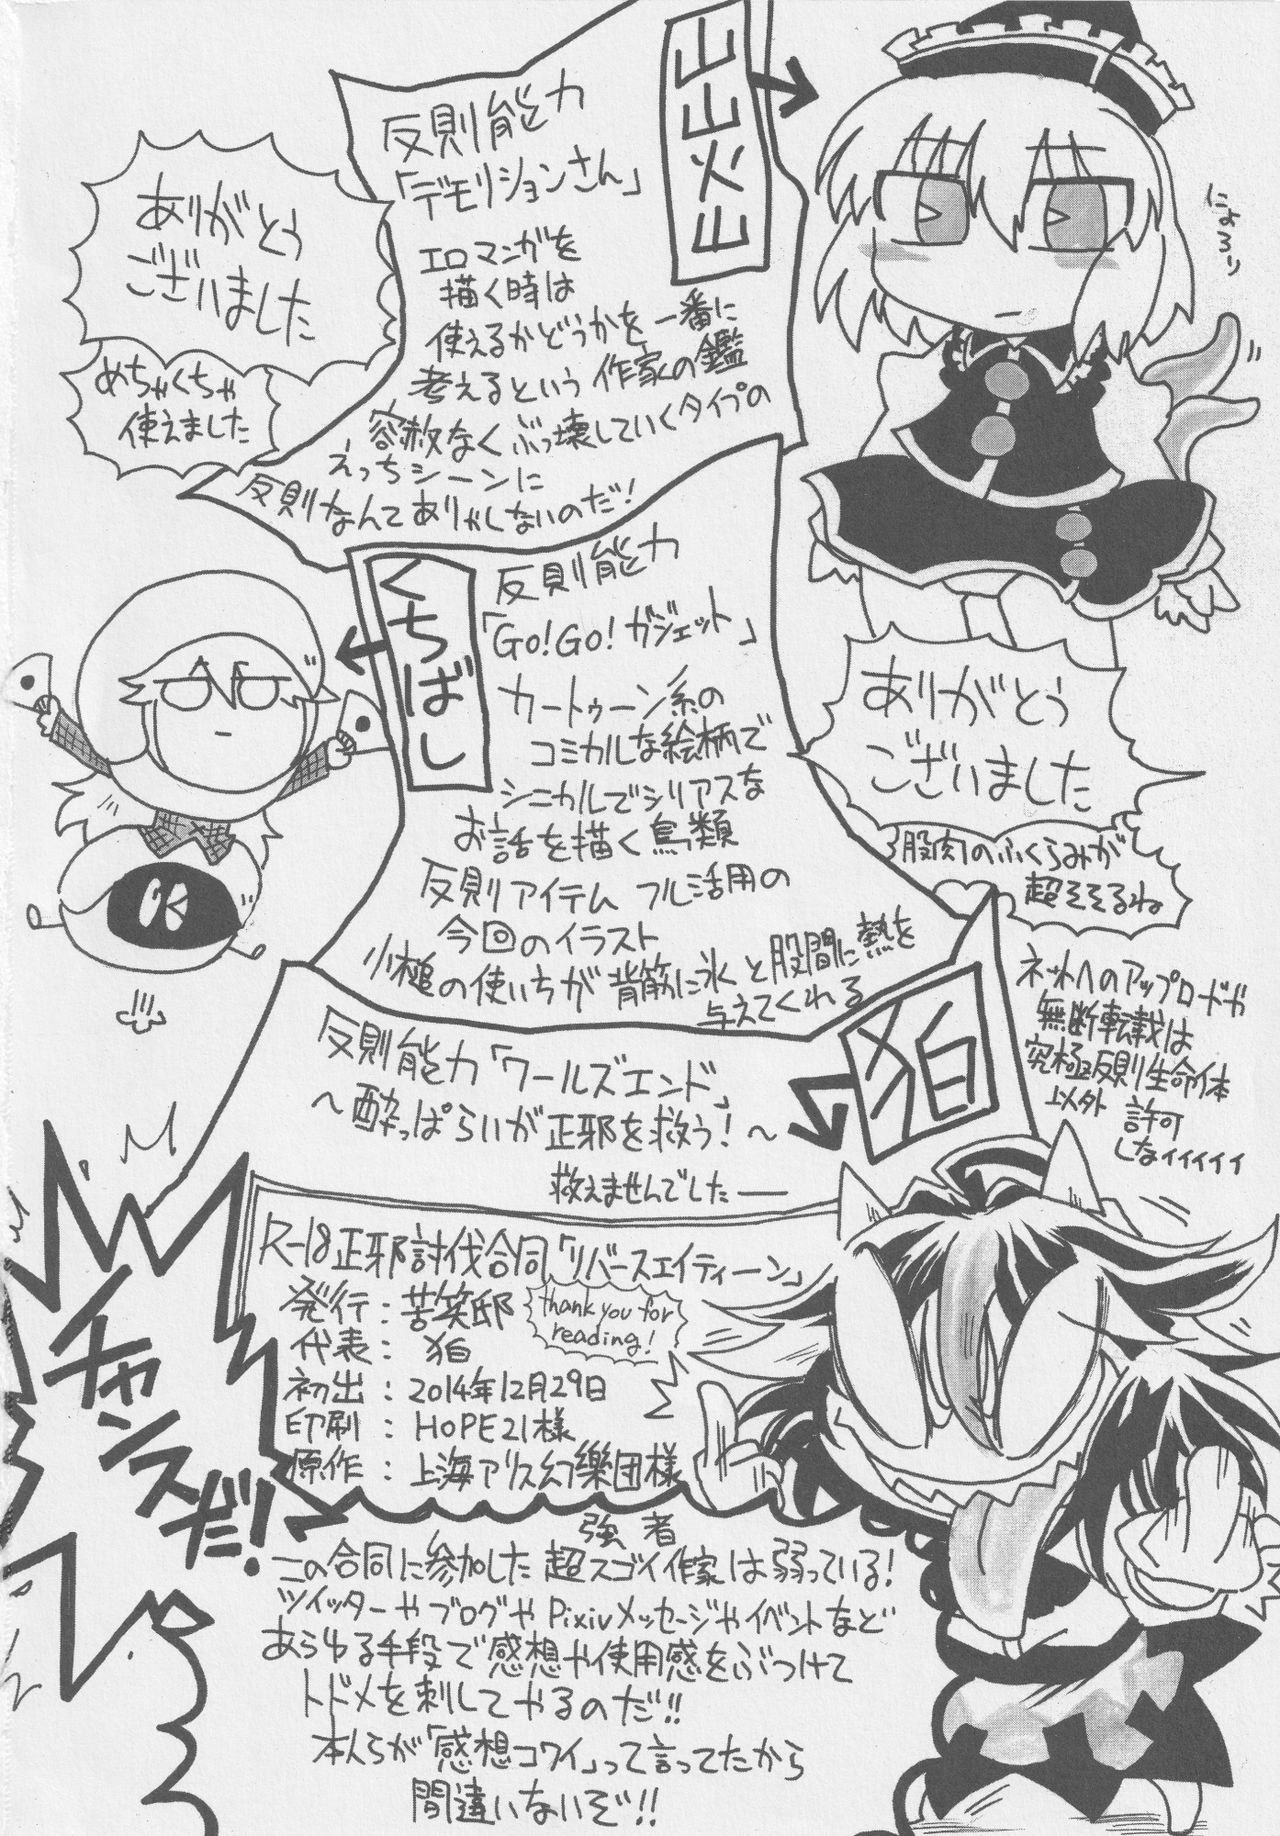 山出火山
にょろり
反則能力
「デモリションさん」
エロマンガを
描く時は
使えるかどうかを一番に
考えるという作家の鑑
容赦なくぶっ壊していくタイプの
えっちシーンに
反則なんてありゃしないのだ!
ありがとう
ございました
めちゃくちゃ
使えました
くちばし
反則能力
「GO!GO!ガジェット」
カートゥーン系の
コミカルな絵柄で
シニカルでシリアスな
お話を描く鳥類
反則アイテムフル活用の
今回のイラスト
小槌の使いちが背筋に氷と股間に熱を
与えてくれる
ありがとう
ございました
股肉のふくらみが
超そそるね
狛
反則能力「ワールズエンド」
~酔っぱらいが正邪を救う!~
救えませんでしたー
ネットへのアップロードや
無断転載は
究極反則生命体
以外 許可
しなィィィィィ
R-18正邪討伐合同「リバースエイティーン」
発行:苦笑邸
代表: 狛
初出:2014年12月29日
印刷:HOPE21様
原作:上海アリス幻樂団様
thank you for
reading!
チャンスだ!
強者
この合同に参加した超スゴイ作家は弱っている!
ツイッターやブログやPixivメッセージやイベントなど
あらゆる手段で感想や使用感をぶつけて
トドメを刺してやるのだ!!
本人らが「感想コワイ」って言ってたから
間違いないぞ!!